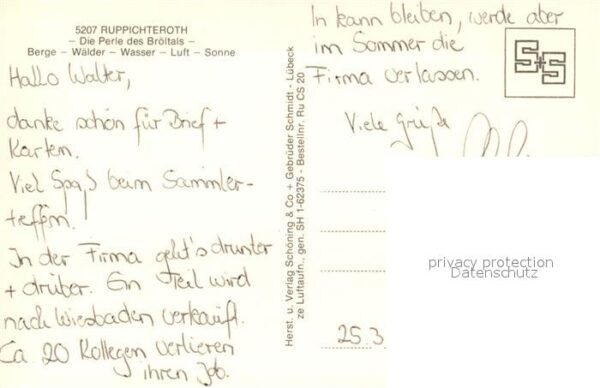 5207 RUPPICHTEROTH
– Die Perle des Bröltals –
Berge – Wälder – Wasser – Luft – Sonne
Hallo Walter,
danke schön für Brief +
Karten.
Viel Spaß beim Sammler-
teffen!
In der Firma geht's drunter
+ drüber. Ein Teil wird
nach Wiesbaden verkauft.
Ca 20 Kollegen verlieren
ihren Job.
Herst. u. Verlag Schöning & Co + Gebrüder Schmidt - Lübeck
ze Luftaufn., gen. SH 1-62375 - Bestellnr. Ru CS 20
In kann bleiben, werde aber
im Sommer die
Firma verlassen.
Viele Grüße
S+S
privacy protection
Datenschutz
25.3